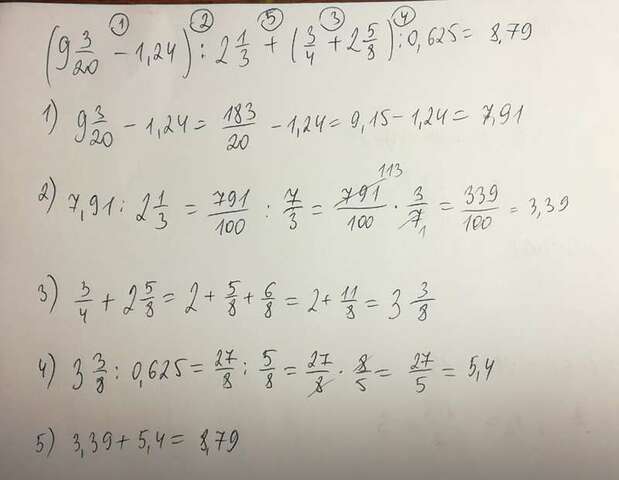 ① ② ⑤ ③ ④
(9 3/20 - 1,24) : 2 1/3 + (3/4 + 2 5/8) : 0,625 = 8,79
1) 9 3/20 - 1,24 = 183/20 - 1,24 = 9,15 - 1,24 = 7,91
2) 7,91 : 2 1/3 = 791/100 : 7/3 = 791/100 113 · 3/7 1 = 339/100 = 3,39
3) 3/4 + 2 5/8 = 2 + 5/8 + 6/8 = 2 + 11/8 = 3 3/8
4) 3 3/8 : 0,625 = 27/8 : 5/8 = 27/8 · 8/5 = 27/5 = 5,4
5) 3,39 + 5,4 = 8,79